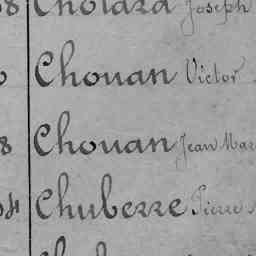 8 Cholard Joseph
Chouan Victor
8 Chouan Jean Mar
04 Chuberre Pierre